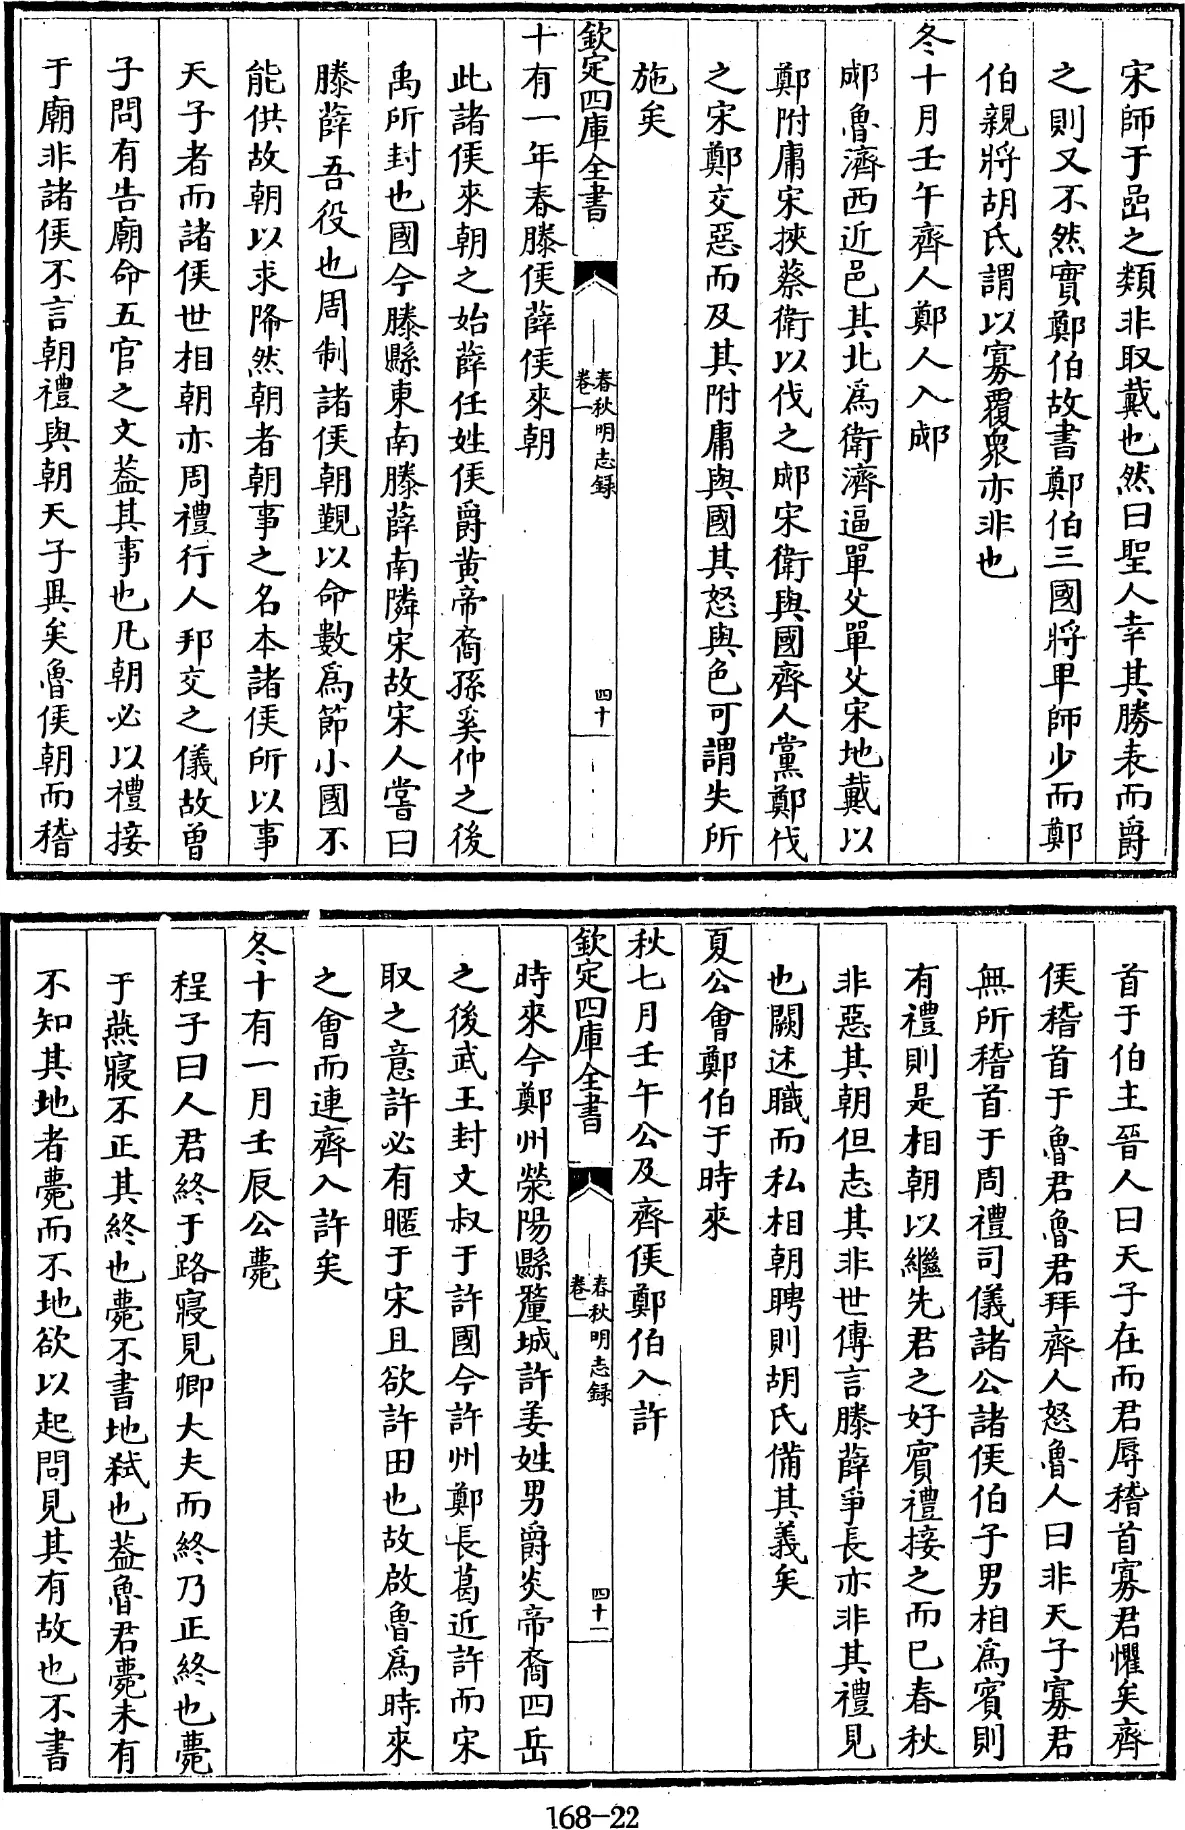 宋師于嵒之類非取戴也然曰聖人幸其勝表而爵
之則又不然實鄭伯故書鄭伯三國將卑師少而鄭
伯親將胡氏謂以寡覆衆亦非也
冬十月壬午齊人鄭人入郕
郕魯濟西近邑其北爲衛濟逼單父單父宋地戴以
鄭附庸宋挾蔡衛以伐之郕宋衛與國齊人黨鄭伐
之宋鄭交惡而及其附庸與國其怒與色可謂失所
施矣
欽定四庫全書
春秋明志録
卷一
四十
十有一年春滕侯薛侯來朝
此諸侯來朝之始薛任姓侯爵黄帝裔孫奚仲之後
禹所封也國今滕縣東南滕薛南隣宋故宋人嘗曰
滕薛吾役也周制諸侯朝覲以命數爲節小國不
能供故朝以求降然朝者朝事之名本諸侯所以事
天子者而諸侯世相朝亦周禮行人邦交之儀故曽
子問有告廟命五官之文葢其事也凡朝必以禮接
于廟非諸侯不言朝禮與朝天子異矣魯侯朝而稽
首于伯主晉人曰天子在而君辱稽首寡君懼矣齊
侯稽首于魯君魯君拜齊人怒魯人曰非天子寡君
無所稽首于周禮司儀諸公諸侯伯子男相爲賓則
有禮則是相朝以繼先君之好賓禮接之而已春秋
非惡其朝但志其非世傳言滕薛爭長亦非其禮見
也闕述職而私相朝聘則胡氏備其義矣
夏公會鄭伯于時來
秋七月壬午公及齊侯鄭伯入許
欽定四庫全書
春秋明志録
卷一
四十一
時來今鄭州滎陽縣釐城許姜姓男爵炎帝裔四岳
之後武王封文叔于許國今許州鄭長葛近許而宋
取之意許必有暱于宋且欲許田也故啟魯爲時來
之會而連齊入許矣
冬十有一月壬辰公薨
程子曰人君終于路寢見卿大夫而終乃正終也薨
于燕寢不正其終也薨不書地弑也葢魯君薨未有
不知其地者薨而不地欲以起問見其有故也不書
168-22